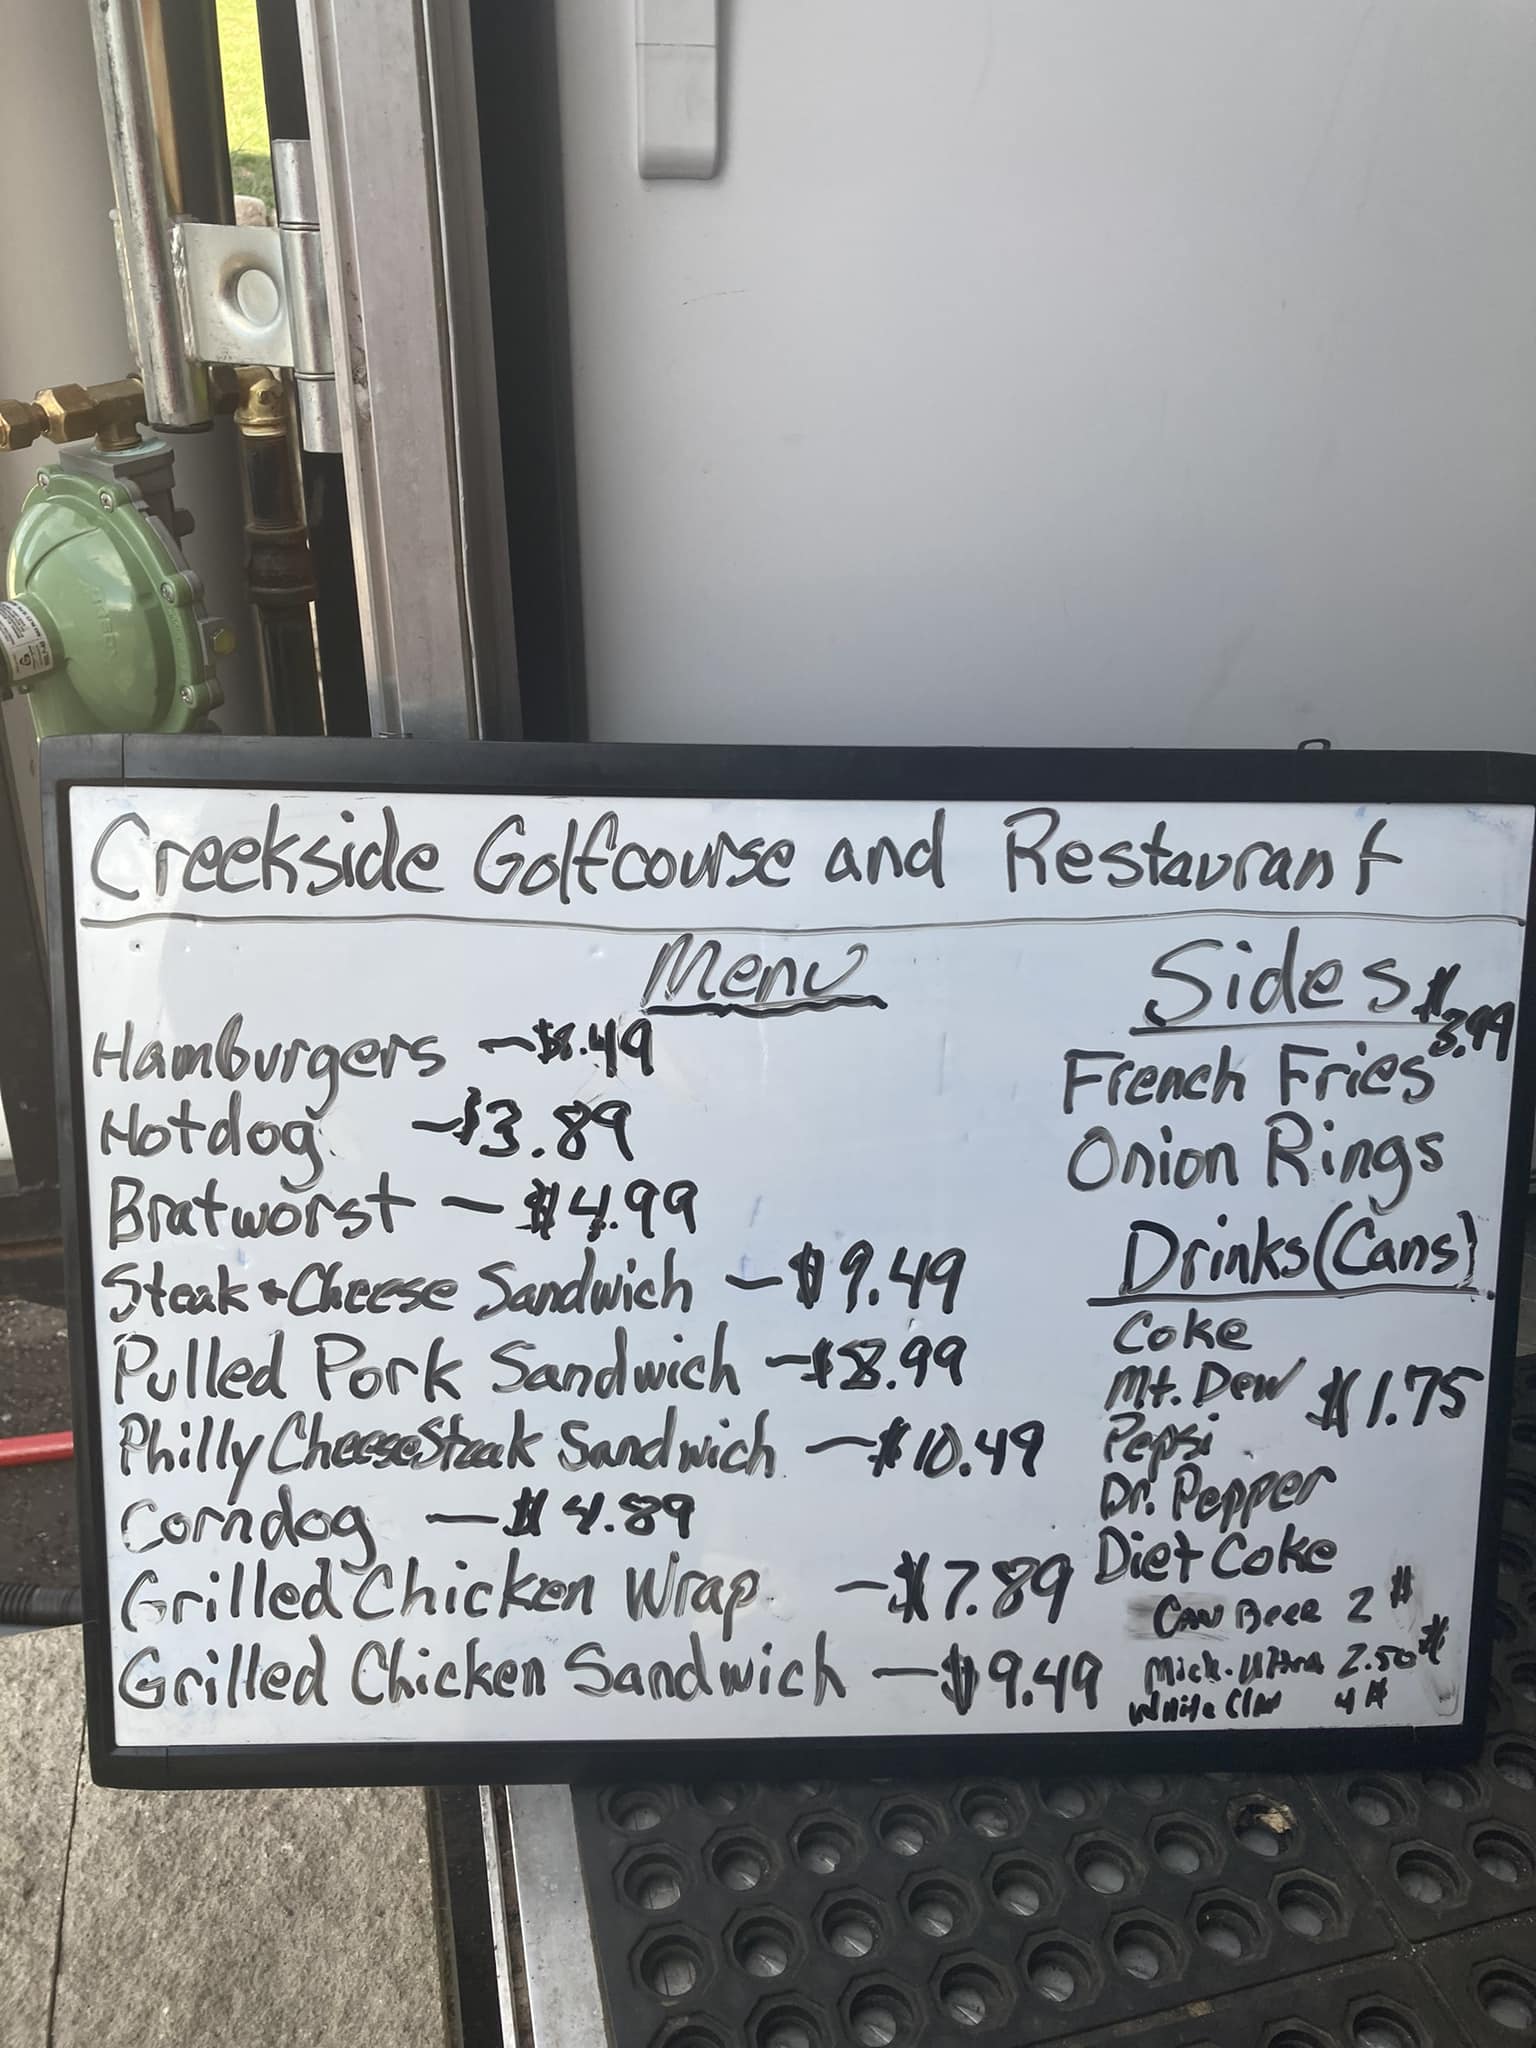 Creekside Golfcourse and Restaurant
Menu
Hamburgers - $8.49
Hotdog - $3.89
Bratworst - $4.99
Steak + Cheese Sandwich - $9.49
Pulled Pork Sandwich - $8.99
Philly CheeseSteak Sandwich - $10.49
Corndog - $4.89
Grilled Chicken Wrap - $7.89
Grilled Chicken Sandwich - $9.49
Sides $3.99
French Fries
Onion Rings
Drinks (Cans)
Coke
Mt. Dew
$1.75
Pepsi
Dr. Pepper
Diet Coke
CAN Beer 2 $
Mich. Ultra 2.50 $
White Claw 4 $